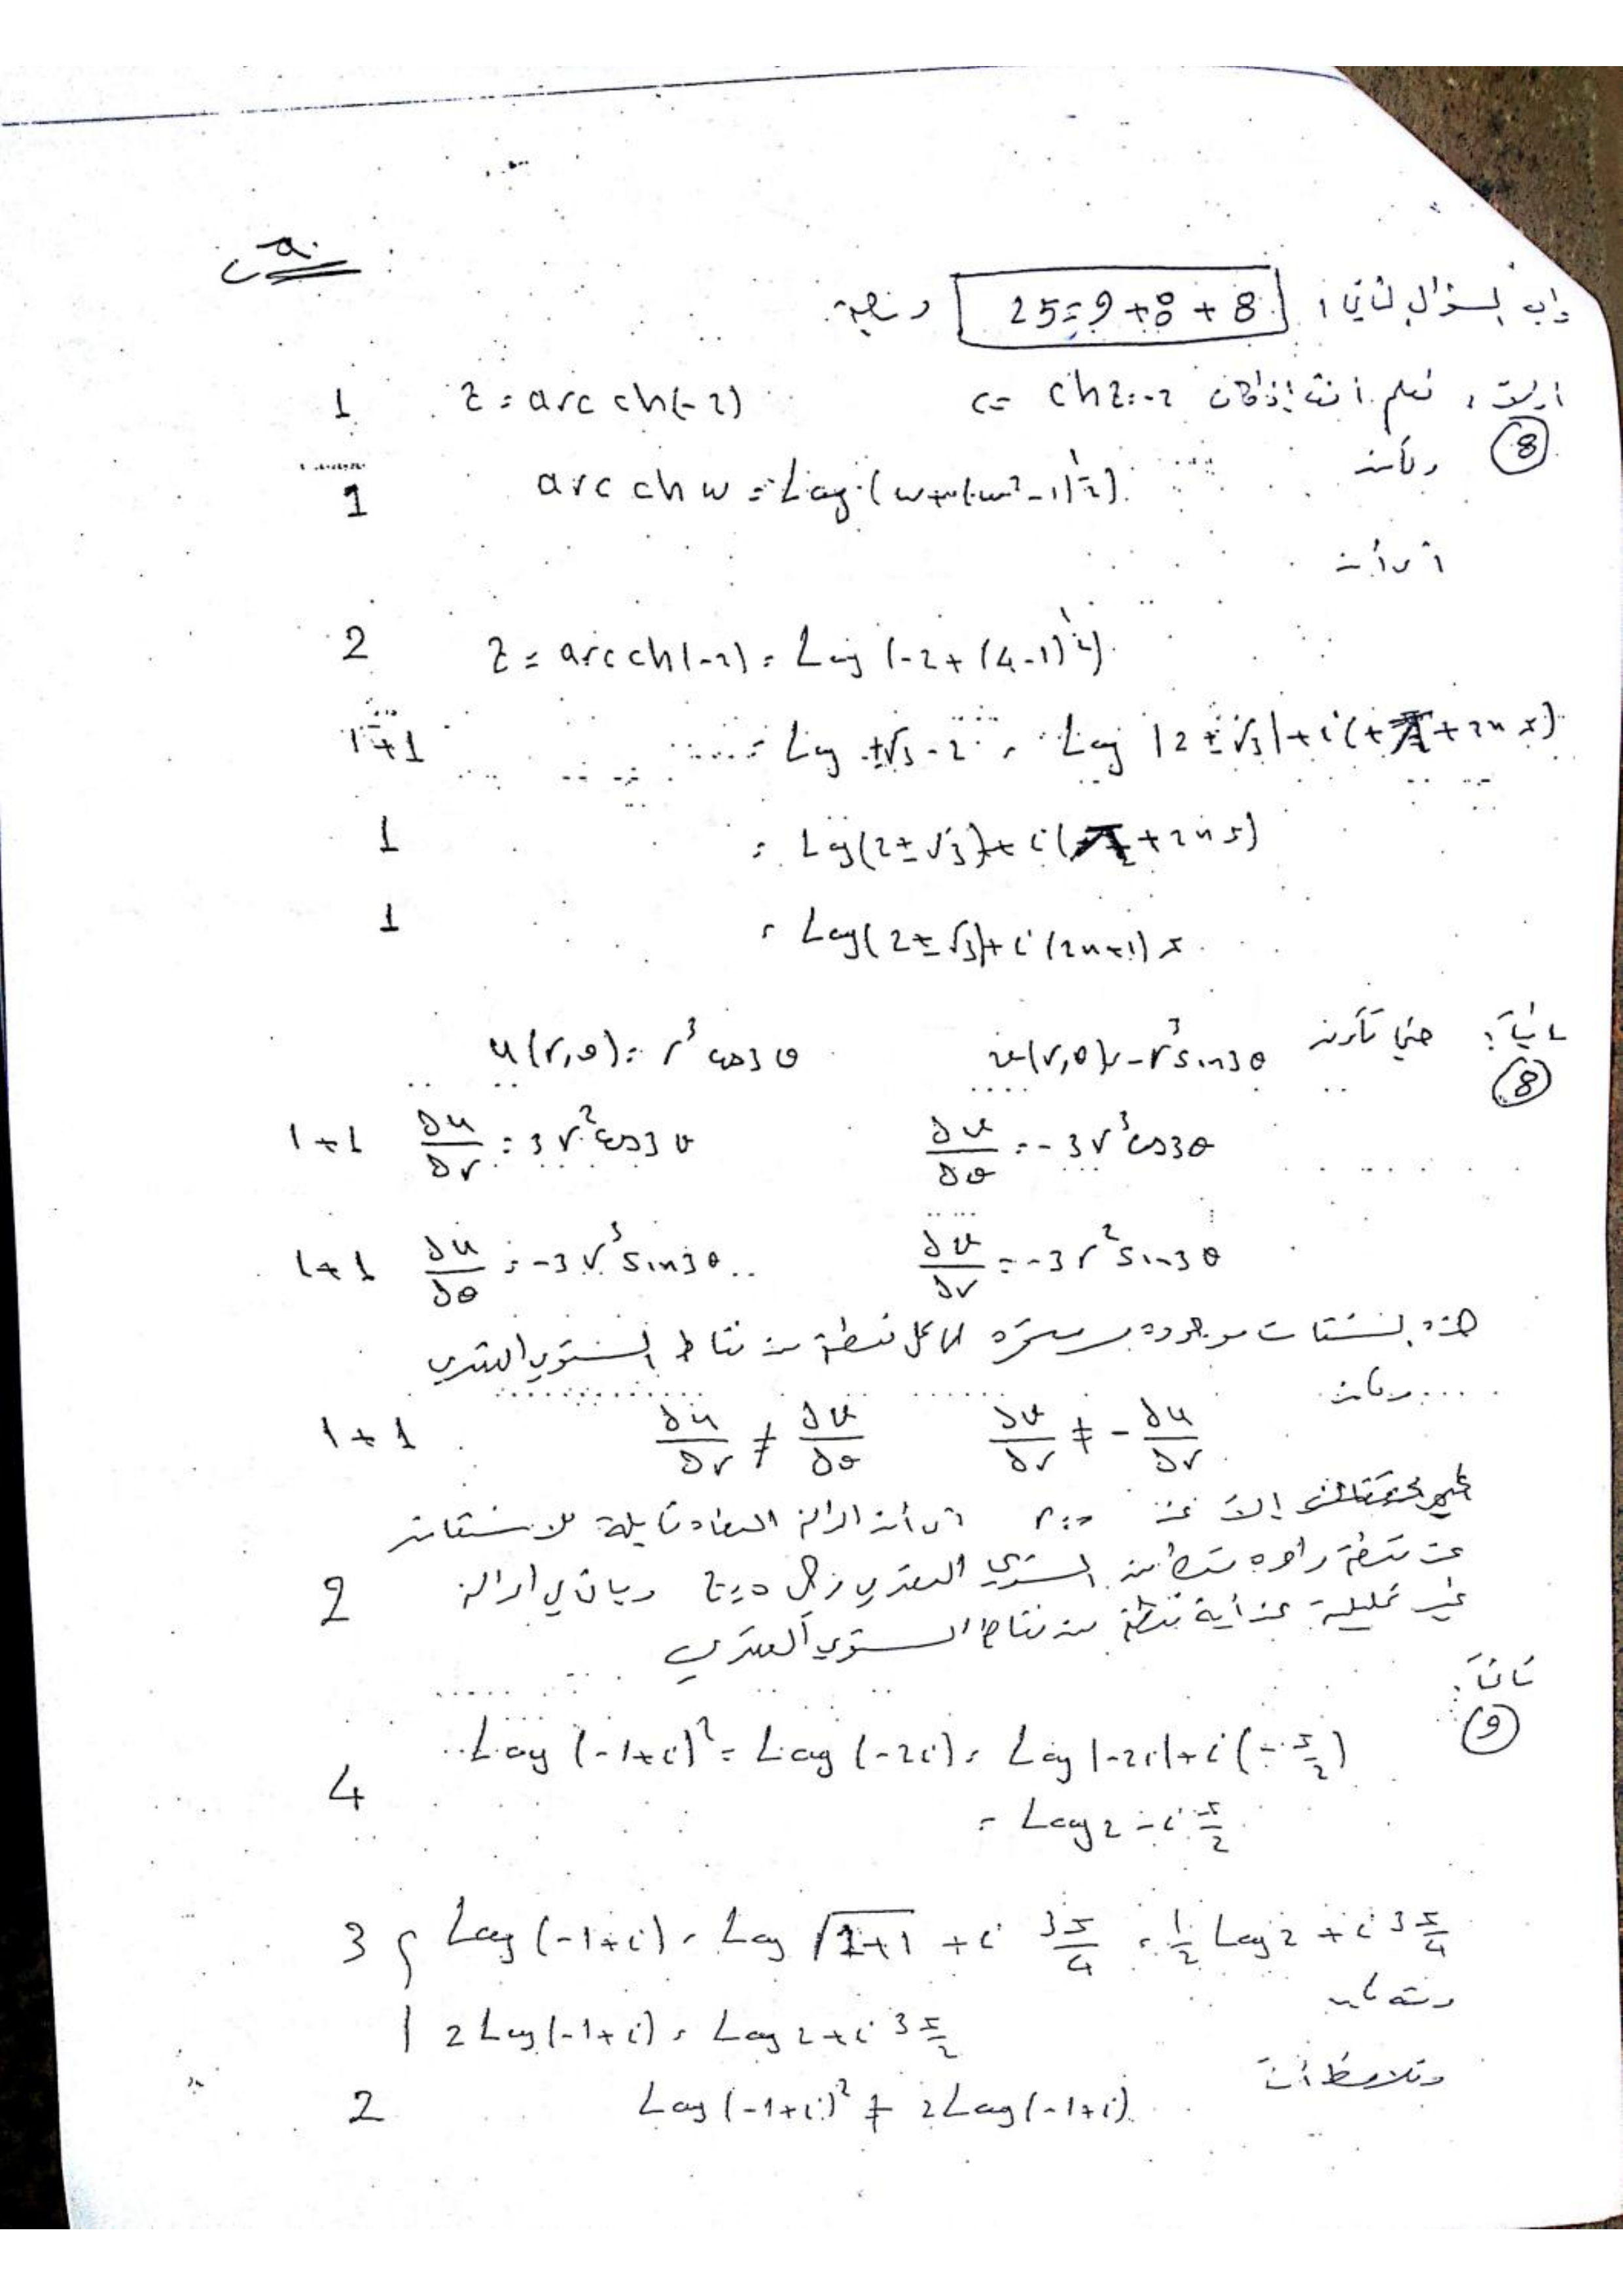 جواب السؤال الثاني: 8 + 8 + 9 = 25 درجة
أولاً: نعلم أنه إذا كان ch z = -2 => z = arc ch(-2) 1
(8) وكان arc ch w = Log (w + (w² - 1)^½) 1
z = arc ch(-2) = Log (-2 + (4-1)^½) 2
= Log ±√3 - 2 = Log |2 ± √3| + i(π + 2nπ) 1+1
= Log(2±√3) + i(π + 2nπ) 1
= Log(2±√3) + i(2n+1)π 1
ثانياً: u(r,θ) = r³ cos3θ v(r,θ) = -r³ sin3θ
(8)
1+1 ∂u/∂r = 3r² cos3θ ∂v/∂θ = -3r³ cos3θ
1+1 ∂u/∂θ = -3r³ sin3θ ∂v/∂r = -3r² sin3θ
هذه المشتقات موجودة ومستمرة كل نقطة من نقاط المستوي العقدي
وكان
1+1 ∂u/∂r ≠ ∂v/∂θ ∂v/∂r ≠ - ∂u/∂r
إلا عند r=0 أي أن الدالة المعطاة قابلة للاشتقاق
2 عند نقطة واحدة فقط من المستوي العقدي z=0 وبالتالي الدالة
غير تحليلية عند أية نقطة من نقاط المستوي العقدي
ثالثاً:
(9) Log (-1+i)² = Log (-2i) = Log |-2i| + i(-π/2)
4 = Log 2 - i π/2
3 Log (-1+i) = Log √1+1 + i 3π/4 = ½ Log 2 + i 3π/4
2 Log(-1+i) = Log 2 + i 3π/2
ونلاحظ أن Log (-1+i)² ≠ 2 Log(-1+i) 2